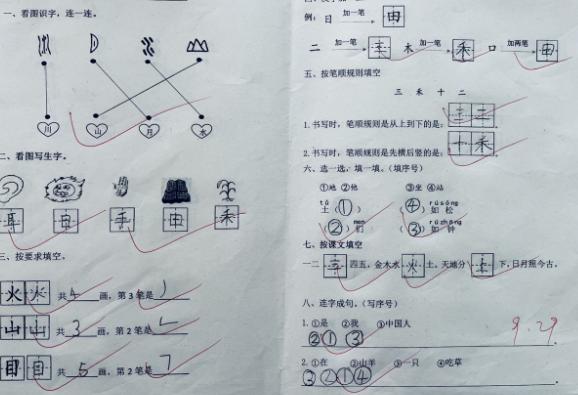 一、看图识字，连一连。
川 山 月 水
二、看图写生字。
耳 日 手 田 禾
三、按要求填空。
火 火 共 4 画，第3笔是 丿
山 山 共 3 画，第2笔是 ㄴ
目 目 共 5 画，第2笔是 ㇕
例：日 加一笔 由
二 加一笔 三 木 加一笔 禾 口 加两笔 由
五、按笔顺规则填空
三 禾 十 二
1.书写时，笔顺规则是从上到下的是：三 二
2.书写时，笔顺规则是先横后竖的是：十 禾
六、选一选，填一填。（填序号）
①地 ②他 ③坐 ④站
tǔ rú sōng
土（①） （④）如 松
men rú zhōng
（②）们 （③）如 钟
七、按课文填空
一二 三 四五，金木水 火 土，天地分 上 下，日月照今古。
八、连字成句。（写序号）
1.①是 ②我 ③中国人
②① ③ 。
9.29
2.①在 ②山羊 ③一只 ④吃草
③②①④ 。